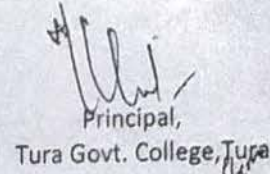 Principal,
Tura Govt. College, Tura